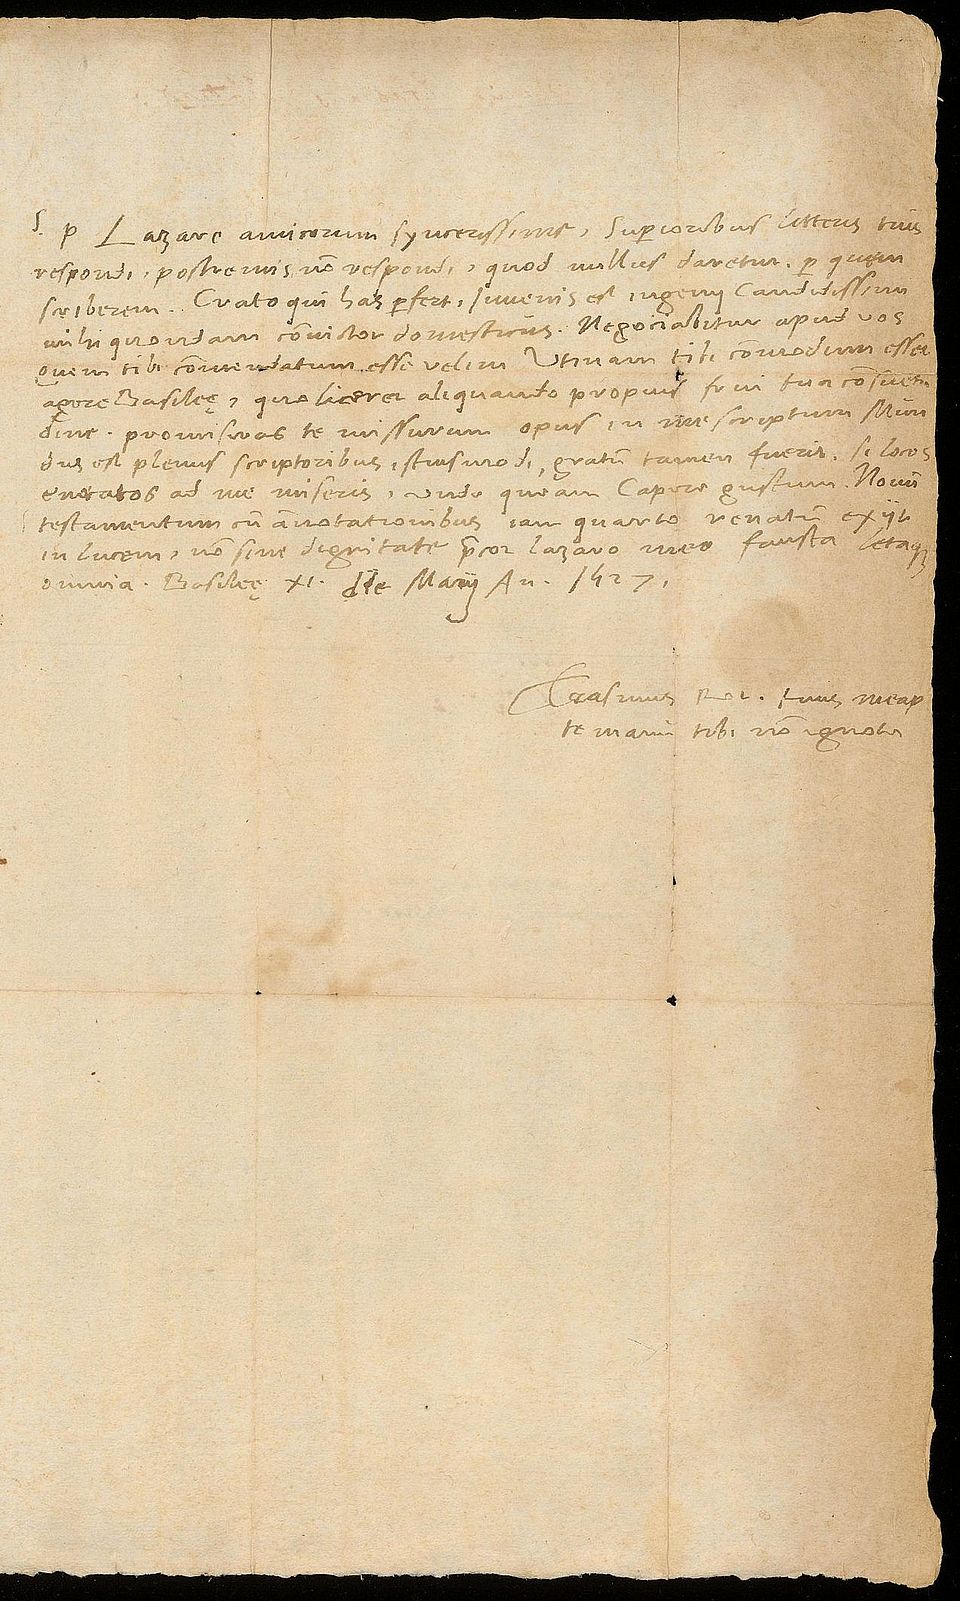 S. p Lazare amicorum syncerissime, Superioribus litteris tuis
respondi, postremis nõ respondi, quod nullus daretur. per quem
scriberem. Crato qui has perfert, Iuvenis est ingenij Candidissimi
mihi quondam cõvictor domesticus. Negociabitur apud vos
quem tibi cõmendatum esse velim Utinam tibi cõmodum esset
agere Basileę, quo liceret aliquando propius frui tua cõsuetu
dine. promiseras te missurum opus in me scriptum Mun
dus est plenus scriptoribus istiusmodi, gratũ tamen fuerit. si locos
enotatos ad me miseris, unde queam Capere gustum. Novũ
testamentum cũ ãnotationibus iam quarto renatũ exijt
in lucem, nõ sine dignitate p̃cor Lazaro meo fausta letaq
omnia. Basileę XI. die Marij An. 1527.
Erasmus Rot. tuus meap
te manu tibi nõ ignota